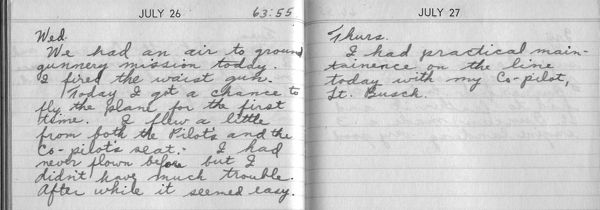 JULY 26
63:55
Wed.
We had an air to ground
gunnery mission today.
I fired the waist gun.
Today I got a chance to
fly the plane for the first
time. I flew a little
from both the Pilot's and the
Co-pilot's seat. I had
never flown before but I
didn't have much trouble.
After while it seemed easy.
JULY 27
Thurs.
I had practical main-
tainence on the line
today with my Co-pilot,
Lt. Busch.